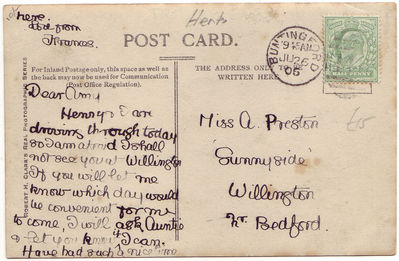 Herts
here.
from
POST CARD.
For Inland Postage only, this space as well as
the back may now be used for Communication
(Post Office Regulation).
THE ADDRESS ONLY
WRITTEN HERE
BUNTINGFORD
JU 26
06
HALF PENNY
ROBERT H. CLARK'S REAL PHOTOGRAPHIC SERIES
Dear Amy
Henry & I are
driving through today
so I am afraid I shall
not see you at Willington
If you will let me
know which day would
be convenient for me
to come, I will ask Auntie
& let you know if I can.
Have had such a nice time
Miss A. Preston
'Sunnyside'
Willington
Nr. Bedford.
£5